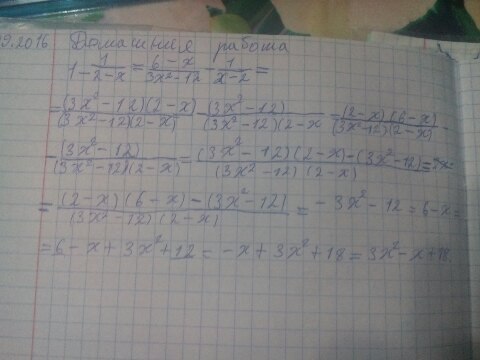 9.2016 Домашняя работа
1-1/(2-x)=(6-x)/(3x²-12)-1/(x-2)=
=(3x²-12)(2-x)/(3x²-12)(2-x)-(3x²-12)/(3x²-12)(2-x=(2-x)(6-x)/(3x²-12)(2-x)-
-(3x²-12)/(3x²-12)(2-x)=(3x²-12)(2-x)-(3x²-12)/(3x²-12)(2-x)=
=(2-x)(6-x)-(3x²-12)/(3x²-12)(2-x)=-3x²-12=6-x=
=6-x+3x²+12=-x+3x²+18=3x²-x+18